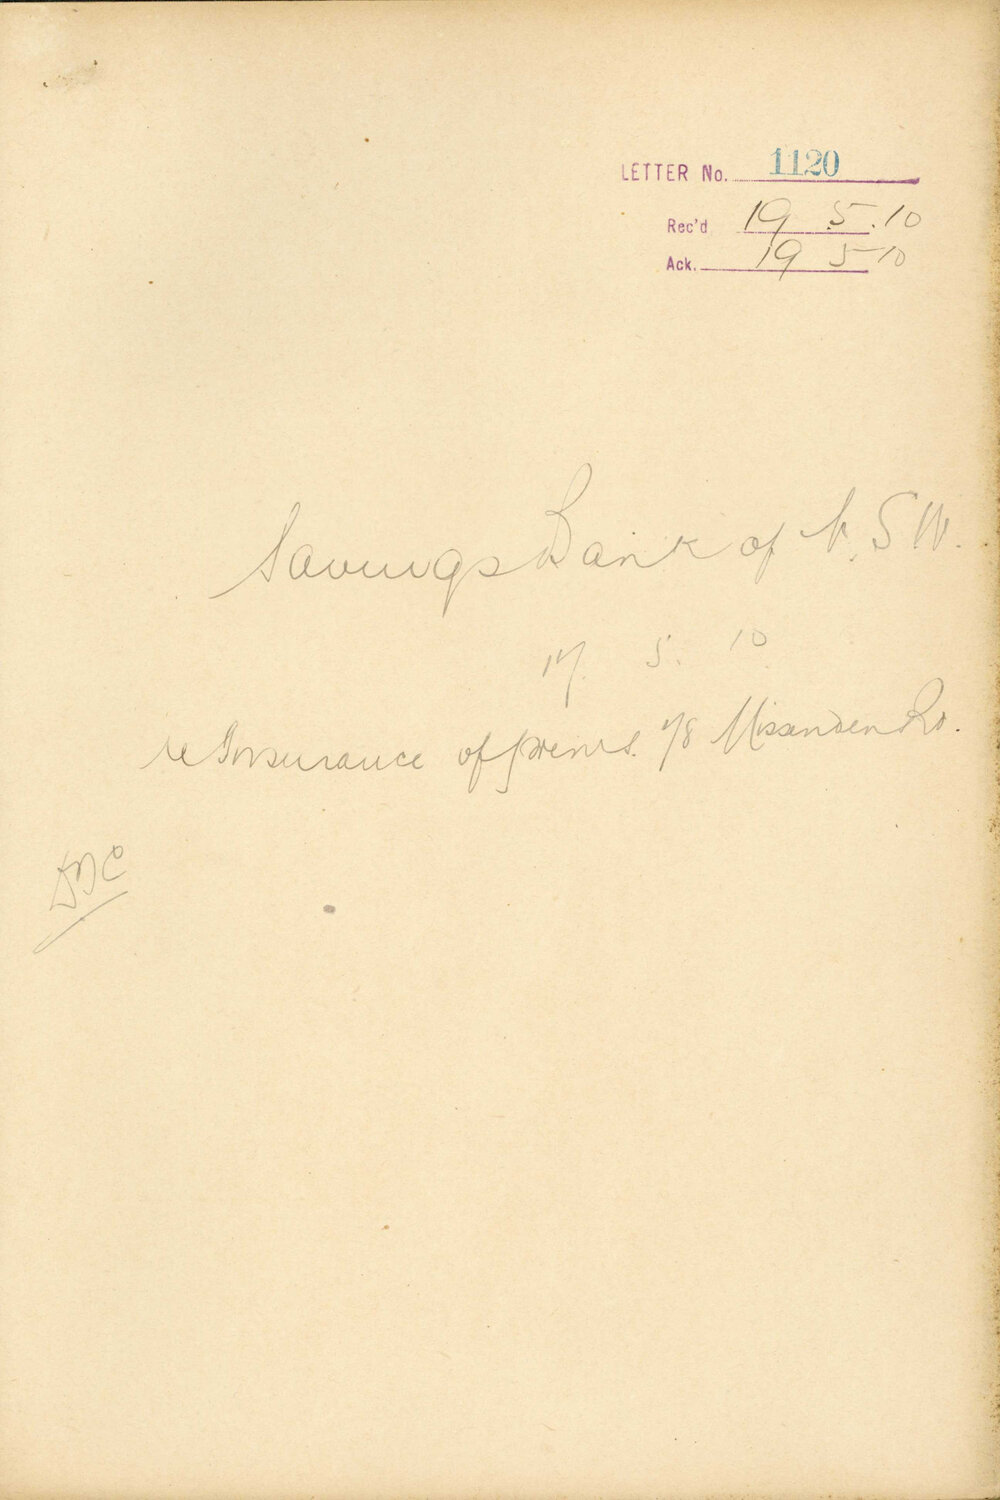 LETTER No. 1120
Rec'd 19 5.10
Ack. 19 5 10
Savings Bank of N.S.W.
17. 5. 10
re Insurance of prems. 78 Missenden Rd.